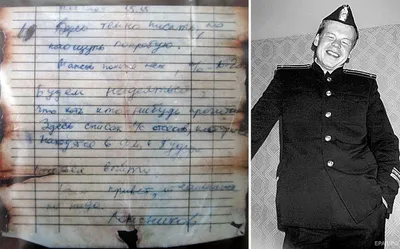 Здесь темно писать, но
наощупь попробую.
Шансов похоже нет %
Будем надеяться
что хоть кто нибудь прочитает
Здесь список л/с отсеков
находятся в 9-м и будут
выйти.
привет, отчаиваться
не надо.
Колесников